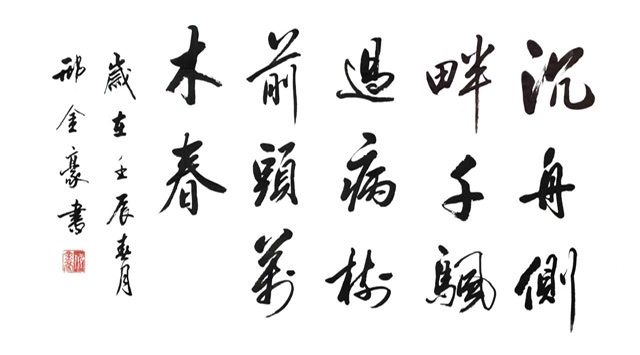 沉舟側
畔千颿
過病樹
前頭萬
木春
歲在壬辰春月
邢金豪書